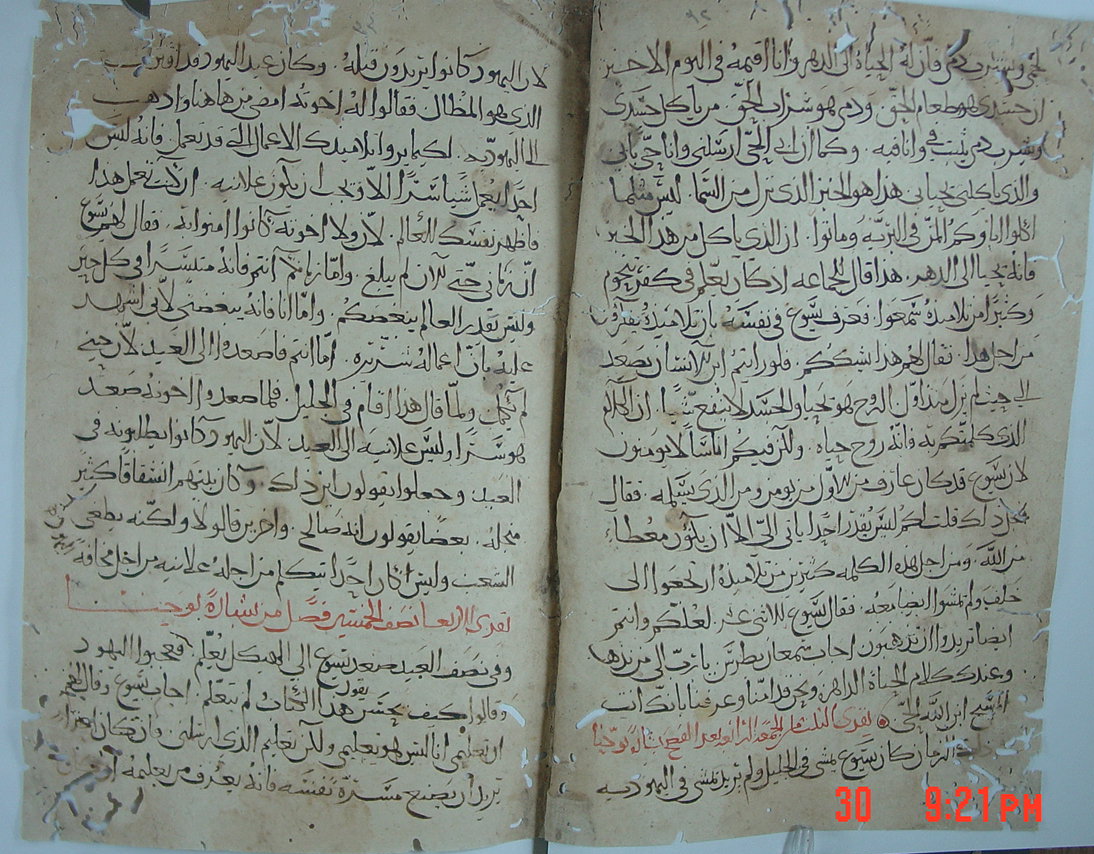 لحمي ويشرب دمي فان له الحياة الى الدهر وانا اقيمه في اليوم الاخير
ان جسدي هو طعام الحق ودمي هو شراب الحق من ياكل جسدي
ويشرب دمي يثبت في وانا فيه وكما ان ابي الحي ارسلني وانا حي بابي
والذي ياكلني يحيا بي هذا هو الخبز الذي نزل من السما ليس مثلما
اكلوا اباوكم المن في البريه وماتوا ان الذي ياكل من هذا الخبز
فانه يحيا الى الدهر هذا قال للجماعه اذ كان يعلم في كفرنحوم
وكثيرا من تلاميذه سمعوا فعرف يسوع في نفسه بان تلاميذه يتقرقون
من اجل هذا فقال لهم هذا يشككم فلو رايتم ابن الانسان يصعد
الى حيث لم يزل منذ اول الروح هو يحيا والجسد لا ينفع شيا ان الكلام
الذي كلمتكم به فانه روح حياه ولكن فيكم اناسا لا يومنون
لان يسوع قد كان عارف من الاول من يومن ومن الذي يسلمه فقال
من اجل ذلك قلت لكم ليس يقدر احدا ياتي الي الا ان يكون معطا
من الله ومن اجل هذه الكلمه كثيرين من تلاميذه ارجعوا الى
خلف ولم يمشوا ايضا معه فقال يسوع للاثني عشر لعلكم وانتم
ايضا تريدوا ان تذهبون اجاب سمعان بطرس يا رب الى من نذهب
وعندك كلام الحياة الداهره ونحن قد امنا وعرفنا بانك انت
المسيح ابن الله الحي يقرى الثلثا الجمعه الرابعه بعد الفصح بشارة يوحنا
الزمان كان يسوع يمشي في الجليل ولم يريد يمشي في اليهوديه
لان اليهود كانوا يريدون قتله وكان عيد اليهود قد اقترب
الذي هو المظال فقالوا له اخوته امضي من هاهنا واذهب
الى اليهوديه لكيما يروا تلاميذك الاعمال التي قد تعمل فانه ليس
احدا يعمل شيا سرا الا ويحب ان يكون علانيه ان كنت تعمل هذا
فاظهر نفسك للعالم لان ولا اخوته كانوا امنوا به فقال لهم يسوع
ان زماني حتى الان لم يبلغ واما زمانكم انتم فانه متيسرا في كل حين
وليس يقدر العالم يبغضكم واما انا فانه يبغضني لاني اشهد
عليه بان اعماله شريره اما انتم فاصعدوا الى العيد لان حيني
لم يكمل ولما قال هذا اقام في الجليل فلما صعدوا اخوته صعد
هو سرا وليس علانيه الى العيد لان اليهود كانوا يطلبونه في
العيد وجعلوا يقولون اين ذلك وكان بينهم انشقاقا كثير
من اجله بعضا يقولون انه صالح واخرين قالوا لا ولكنه يطغي
الشعب وليس كان احدا يتكلم من اجله علانيه من اجل مخافة
اليهود
يقرى الاربعا نصف الخمسين فصل من بشارة يوحنا
وفي نصف العيد صعد يسوع الى الهيكل يعلم فعجبوا اليهود
وقالوا كيف يحسن هذا الكتاب لم يتعلم اجاب يسوع وقال لهم
ان تعليمي انا ليس هو تعليمي ولكن تعليم الذي ارسلني وان كان احدا
يريد ان يصنع مسرة نفسه فانه يعرف من تعليمه
30 9:21 PM